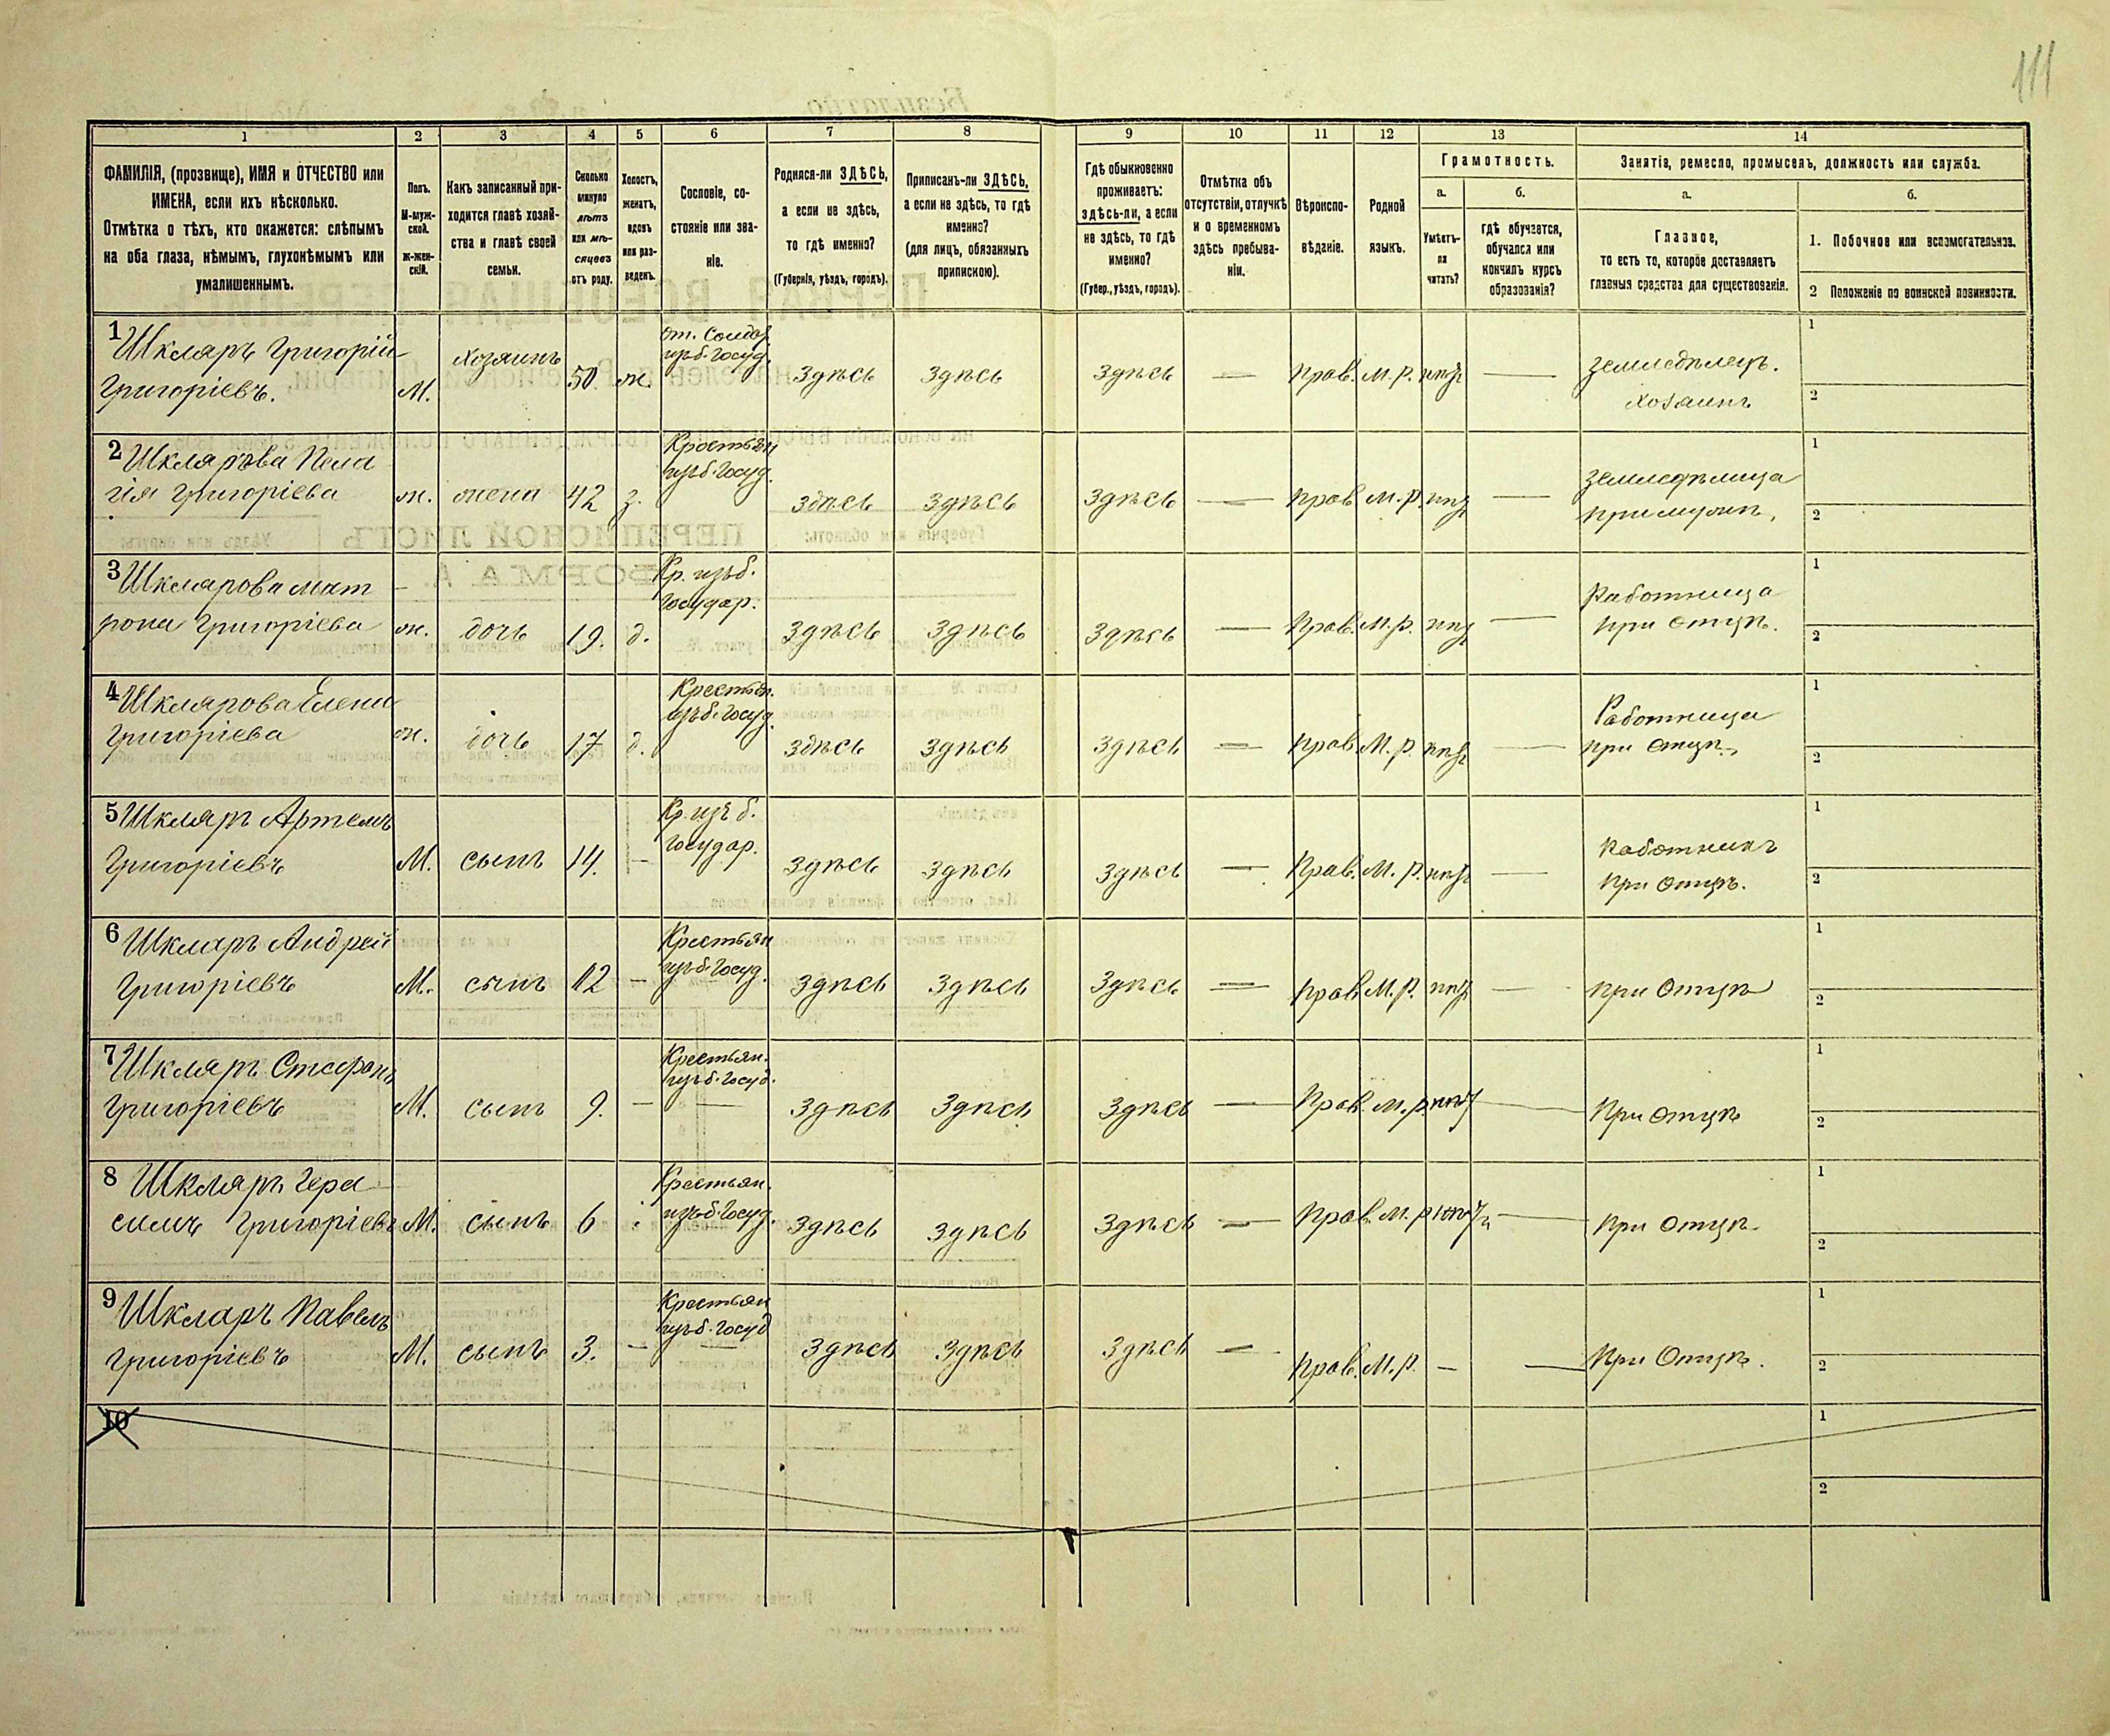 111
1
2
3
4
5
6
7
8
9
10
11
12
13
14
ФАМИЛІЯ, (прозвище), ИМЯ и ОТЧЕСТВО или
ИМЕНА, если ихъ нѣсколько.
Отмѣтка о тѣхъ, кто окажется: слѣпымъ
на оба глаза, нѣмымъ, глухонѣмымъ или
умалишеннымъ.
Полъ.
М-муж-
ской.
Ж-жен-
скій.
Какъ записанный при-
ходится главѣ хозяй-
ства и главѣ своей
семьи.
Сколько
минуло
лѣтъ
или мѣ-
сяцевъ
отъ роду.
Холостъ,
женатъ,
вдовъ
или раз-
веденъ.
Сословіе, со-
стояніе или зва-
ніе.
Родился-ли ЗДѢСЬ,
а если не здѣсь,
то гдѣ именно?
(Губернія, уѣздъ, городъ).
Приписанъ-ли ЗДѢСЬ,
а если не здѣсь, то гдѣ
именно?
(для лицъ, обязанныхъ
припискою).
Гдѣ обыкновенно
проживаетъ:
здѣсь-ли, а если
не здѣсь, то гдѣ
именно?
(Губер., уѣздъ, городъ).
Отмѣтка объ
отсутствіи, отлучкѣ
и о временномъ
здѣсь пребыва-
ніи.
Вѣроиспо-
вѣданіе.
Родной
языкъ.
Грамотность.
а.
Умѣетъ-
ли
читать?
б.
гдѣ обучается,
обучался или
кончилъ курсъ
образованія?
Занятіе, ремесло, промыселъ, должность или служба.
а.
Главное,
то есть то, которое доставляетъ
главныя средства для существованія.
б.
1. Побочное или вспомогательное.
2 Положеніе по воинской повинности.
1 Шкляръ Григорій
Григоріевъ.
М.
хозяинъ
50.
ж.
от. Солдат.
изъ б. госуд.
Здѣсь
Здѣсь
Здѣсь
—
Прав.
М. р.
нѣтъ
—
Земледѣлецъ.
хозяинъ
1
2
2 Шклярова Пела
гія Григоріева
ж.
жена
42
з.
Крестьян
изъ б. госуд.
здѣсь
Здѣсь
Здѣсь
—
Прав
М. р.
нѣтъ
—
Земледѣлица
при мужѣ,
1
2
3 Шклярова Мат
рона Григоріева
ж.
дочь
19.
д.
Кр. изъ б.
Государ.
Здѣсь
Здѣсь
Здѣсь
—
Прав.
М. р.
нѣтъ
—
Работница
при отцѣ.
1
2
4 Шклярова Елена
Григоріева
ж.
дочь
17
д.
Крестьян.
изъ б. госуд.
Здѣсь
Здѣсь
Здѣсь
—
Прав.
М. р.
нѣтъ
—
Работница
при отцѣ.
1
2
5 Шкляръ Артемъ
Григоріевъ
М.
сынъ
14.
—
Кр. изъ б.
Государ.
Здѣсь
Здѣсь
Здѣсь
—
Прав.
М. р.
нѣтъ
—
Работникъ
при отцѣ.
1
2
6 Шкляръ Андрей
Григоріевъ
М.
сынъ
12
—
Крестьян
изъ б. госуд.
Здѣсь
Здѣсь
Здѣсь
—
Прав.
М. р.
нѣтъ
—
при Отцѣ
1
2
7 Шкляръ Стефанъ
Григоріевъ
М.
сынъ
9.
—
Крестьян.
изъ б. госуд.
Здѣсь
Здѣсь
Здѣсь
—
Прав.
М. р.
нѣтъ
—
При отцѣ
1
2
8 Шкляръ Гера
симъ Григоріевъ
М.
сынъ
6
Крестьян.
изъ б. госуд.
Здѣсь
Здѣсь
Здѣсь
—
Прав.
М. р.
нѣтъ
—
При отцѣ
1
2
9 Шкляръ Павелъ
Григоріевъ
М.
сынъ
3.
—
Крестьян
изъ б. госуд
Здѣсь
Здѣсь
Здѣсь
—
Прав.
М. р.
—
—
При Отцѣ.
1
2
10
1
2